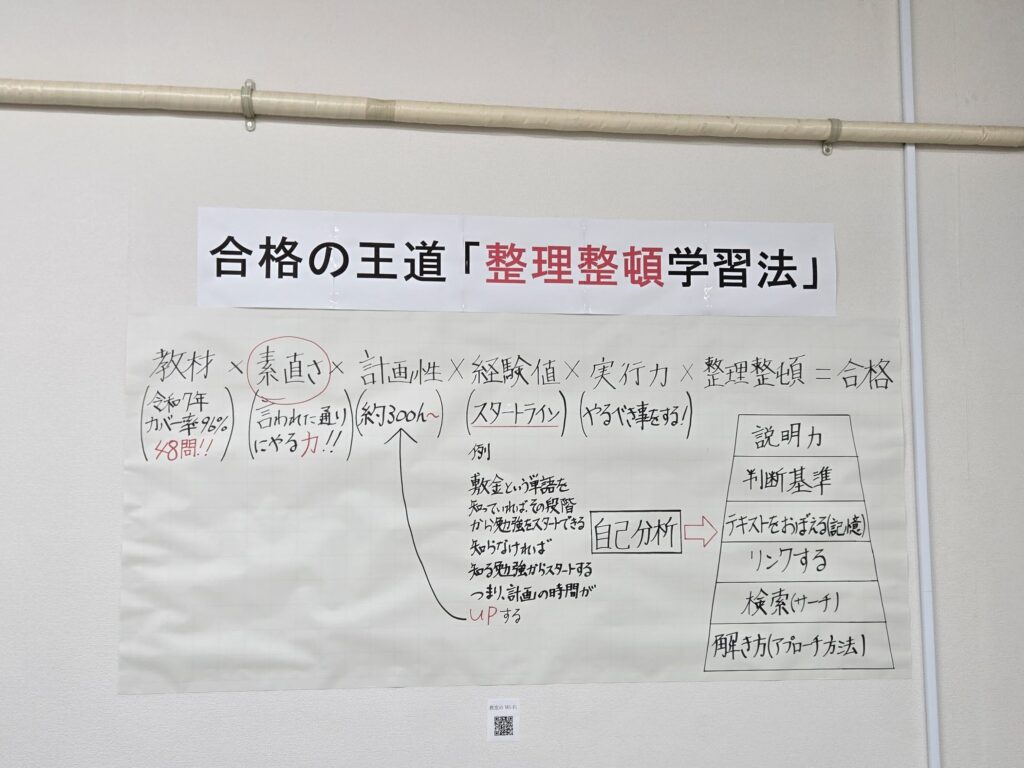 合格の王道「整理整頓学習法」
教材 × 素直さ × 計画性 × 経験値 × 実行力 × 整理整頓 = 合格
(令和7年
カバー率96%
48問!!)
(言われた通り
にやる力!!)
(約300h~)
(スタートライン)
(やるべき事をする!)
例
敷金という単語を
知っていれば、その段階
から勉強をスタートできる
知らなければ
知る勉強からスタートする
つまり、計画の時間が
UPする
自己分析
説明力
判断基準
テキストをおぼえる(記憶)
リンクする
検索(サーチ)
解き方(アプローチ方法)
教室の Wi-Fi